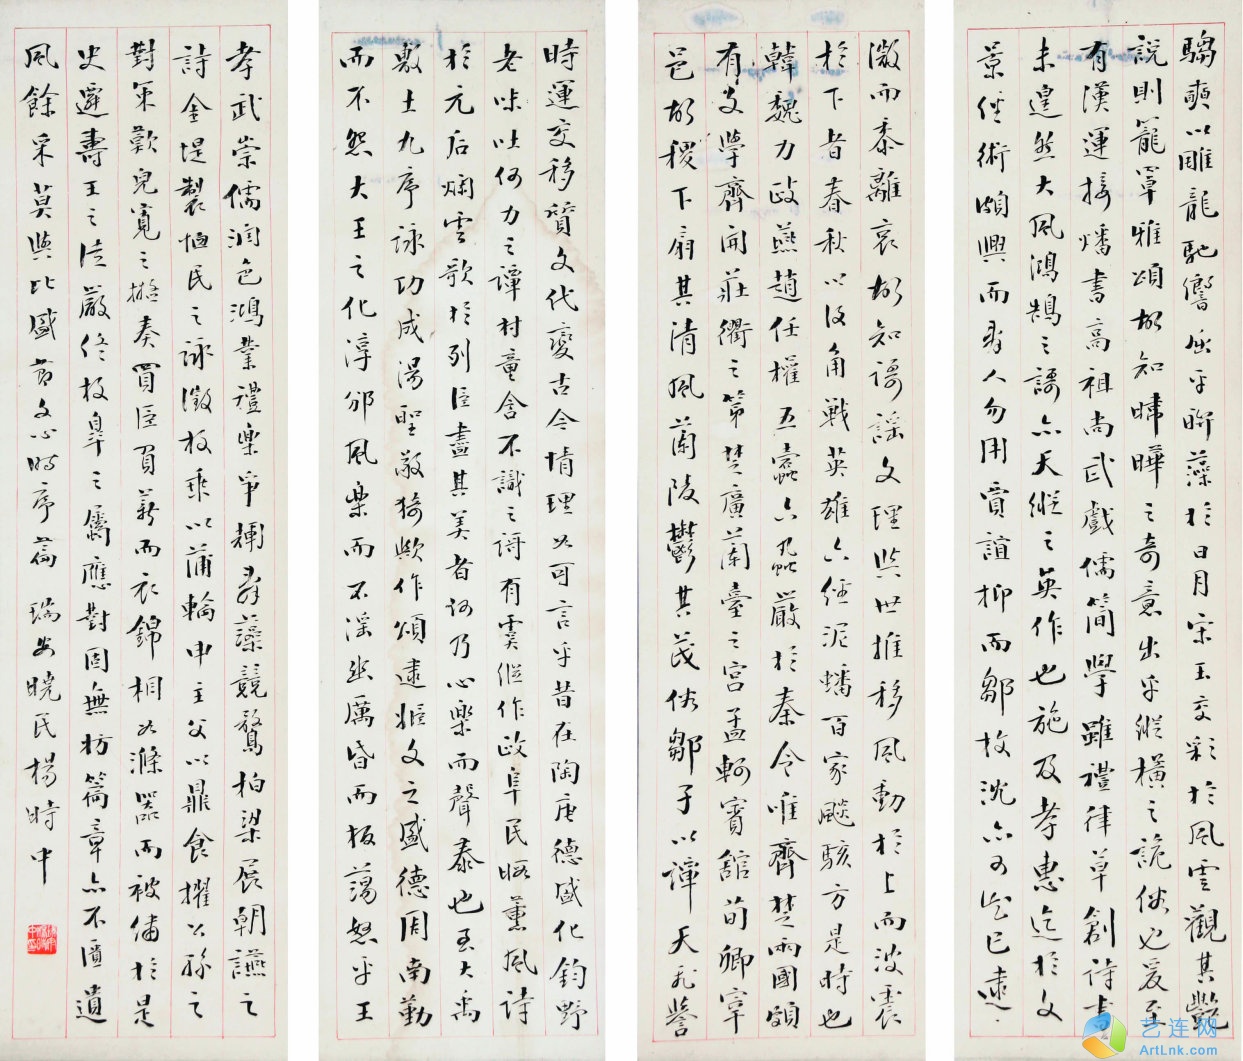 時運交移質文代變古今情理如可言乎昔在陶唐德盛化鈞野
老吐何力之譚村童含不識之詩有虞繼作政阜民暇薰風詩
於元后爛雲歌於列臣盡其美者何乃心樂而聲泰也至大禹
敷土九序詠功成湯聖敬猗歟作頌逮姬文之盛德周南勤
而不怨大王之化淳邠風樂而不淫幽厲昏而板蕩怒平王
微而黍離哀故知謌謠文理與世推移風動於上而波震
於下者春秋以後角戰英雄六經泥蟠百家飈駭方是時也
韓魏力政燕趙任權五蠹六蝨嚴於秦令唯齊楚兩國頗
有文學齊開莊衢之第楚廣蘭臺之宮孟軻賓館荀卿宰
邑故稷下扇其清風蘭陵鬱其茂俗鄒子以譚天飛譽
騶奭以雕龍馳響屈平聯藻於日月宋玉交彩於風雲觀其艷
說則籠罩雅頌故知暐曄之奇意出乎縱橫之詭俗也爰至
有漢運接燔書高祖尚武戲儒簡學雖禮律草創詩書
未遑然大風鴻鵠之謌亦天縱之英作也施及孝惠迄於文
景經術頗興而辭人勿用賈誼抑而鄒枚沈亦可知已逮
孝武崇儒潤色鴻業禮樂爭輝辭藻競騖柏梁展朝讌之
詩金堤製恤民之詠徵枚乘以蒲輪申主父以鼎食擢公孫之
對策歎兒寬之擬奏買臣負薪而衣錦相如滌器而被繡於是
史遷壽王之徒嚴終枚皋之屬應對固無枋篇章亦不匱遺
風餘采莫與比盛節文心時序篇 瑞安曉民楊時中
艺连网
ArtLnk.com